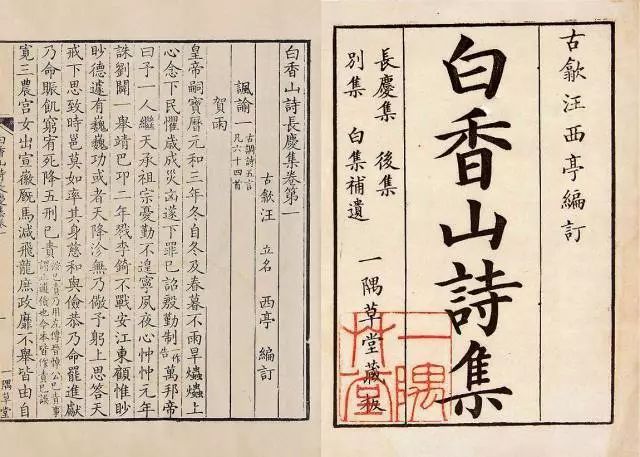 古歙汪西亭編訂
白香山詩集
長慶集 後集
別集 白集補遺
一隅草堂藏板
一隅草堂
白香山詩長慶集卷第一
古歙汪 立名 西亭 編訂
諷諭一 古調詩五言 凡六十四首
賀雨
皇帝嗣寶曆元和三年冬自冬及春暮不雨旱爞爞上
心念下民懼歲成災凶遂下罪已詔殷勤制作告萬邦帝
曰予一人繼天承祖宗憂勤不遑寧夙夜心忡忡元年
誅劉闢一舉靖巴卭二年戮李錡不戰安江東顧惟眇
眇德遽有巍巍功或者天降沴無乃儆予躬上思答天
戒下思致時邕莫如率其身慈和與儉恭乃命罷進獻
乃命賑飢窮宥死降五刑已責 乃用左傳晉悼公已責事 也今本皆作責已誤
寬三農宮女出宣徽厩馬減飛龍庶政靡不舉皆由自
一隅草堂